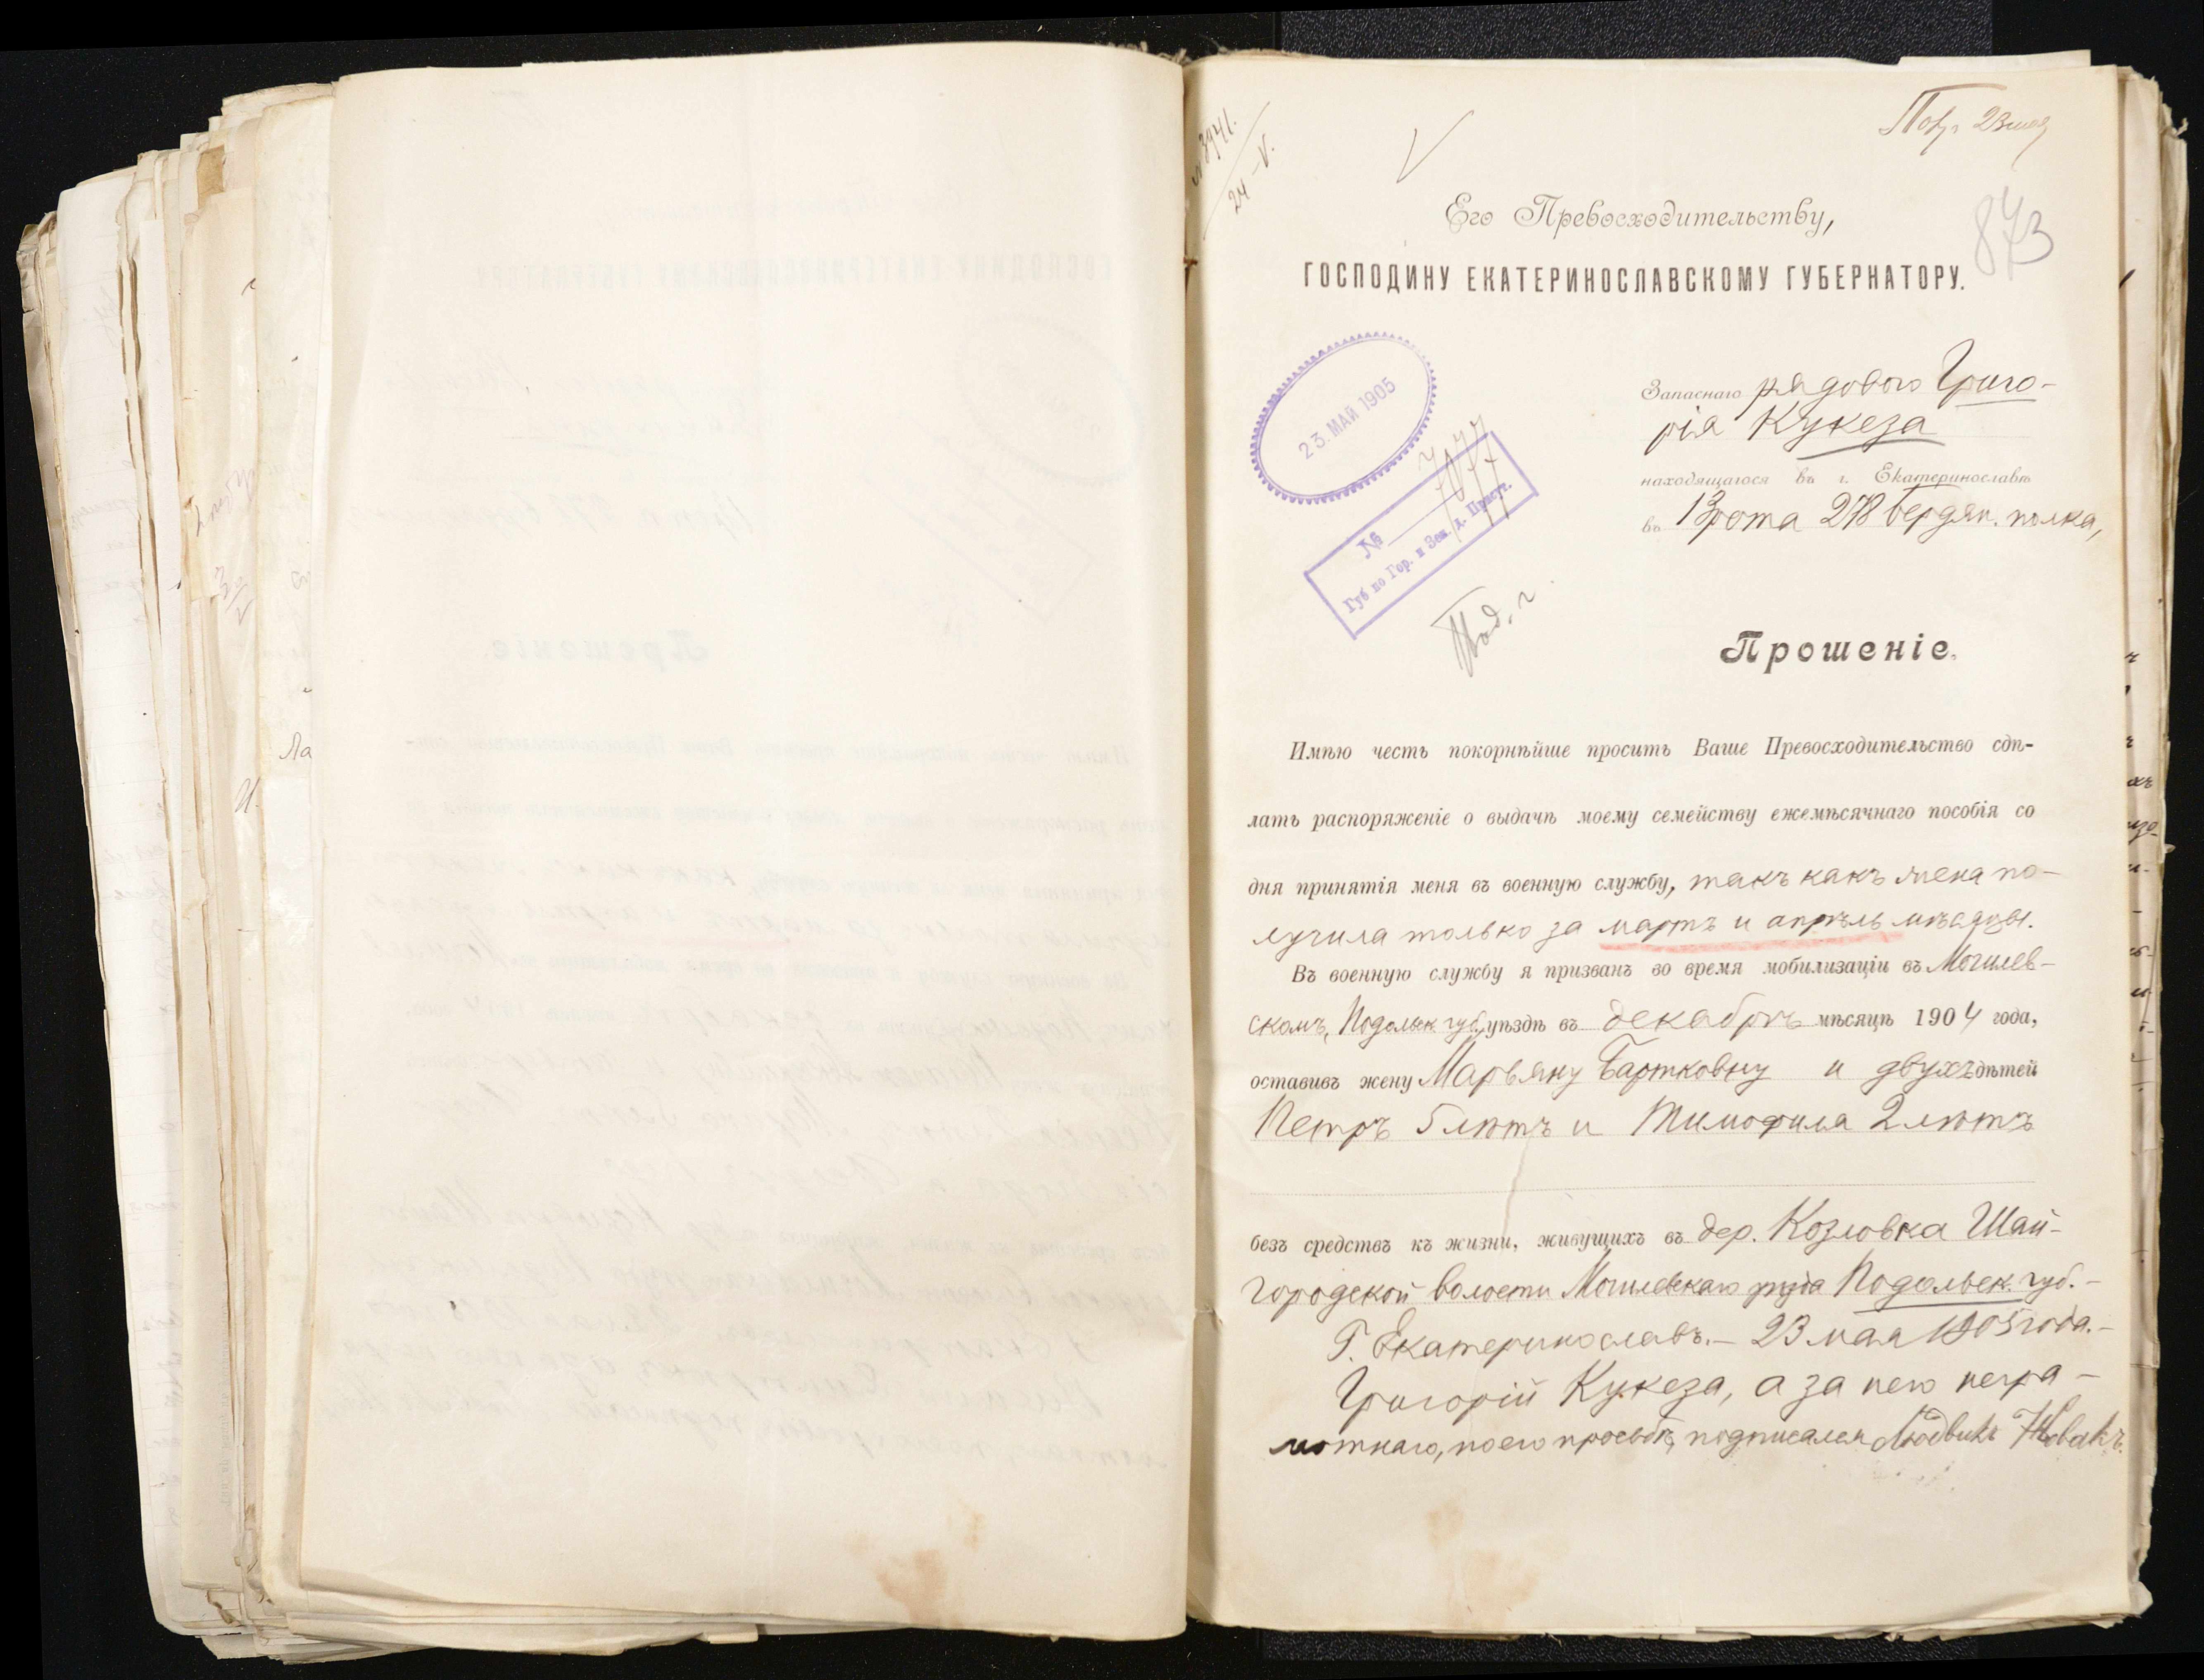 № 3941.
24-V.
873
Его Превосходительству,
ГОСПОДИНУ ЕКАТЕРИНОСЛАВСКОМУ ГУБЕРНАТОРУ.
23. МАЙ 1905
7077
№
Губ по Гор. и Зем. д. Присут.
Под. г.
Запаснаго рядового Григо-
рія Кукеза
находящагося въ г. Екатеринославѣ
въ 13 рота 278 бердян. полка,
Прошеніе.
Имѣю честь покорнѣйше просить Ваше Превосходительство сдѣ-
лать распоряженіе о выдачѣ моему семейству ежемѣсячнаго пособія со
дня принятія меня въ военную службу, такъ какъ жена по-
лучила только за мартъ и апрѣль мѣсяцы.
Въ военную службу я призванъ во время мобилизаціи въ Могилев-
скомъ, Подольск. губ., уѣздѣ въ декабрѣ мѣсяцѣ 1904 года,
оставивъ жену Марьяну Бартковну и двухъ дѣтей
Петръ 5 лѣтъ и Тимофила 2 лѣтъ
безъ средствъ къ жизни, живущихъ въ дер. Козловка Шай-
городской волости Могилевскаго уѣзда Подольск. губ.-
Г. Екатеринославъ.- 23 мая 1905 года.-
Григорій Кукеза, а за него негра-
мотнаго, по его просьбѣ, подписался Людвикъ Новакъ.
Ла